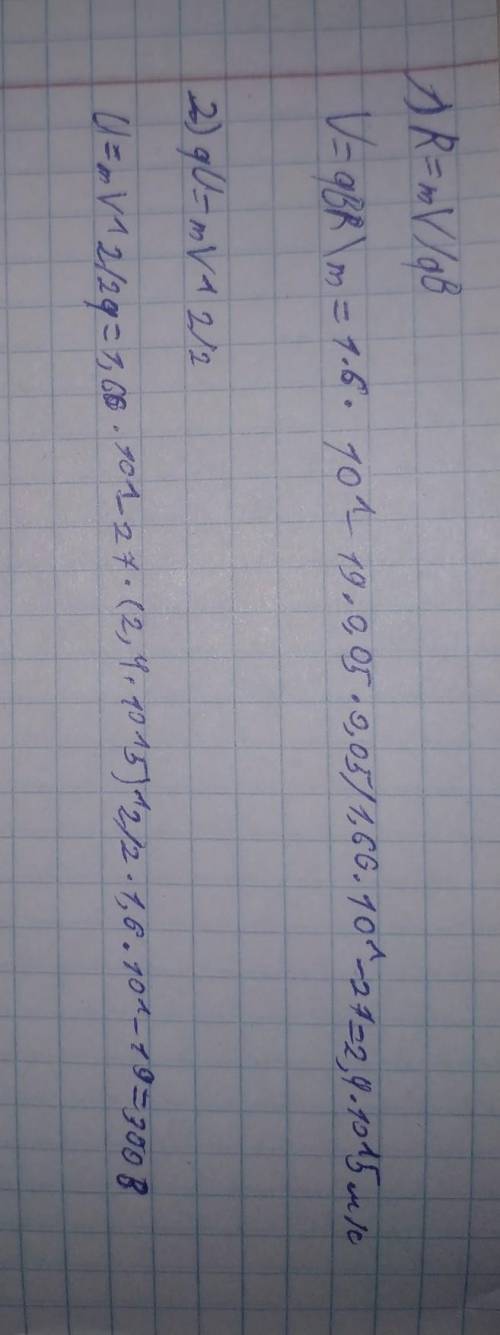 1) R = mV/qB
V = qBR \ m = 1.6 · 10^-19 · 0,05 · 0,05/1,66 · 10^-27 = 2,4 · 10^5 м/с
2) qU = mV^2/2
U = mV^2/2q = 1,66 · 10^-27 · (2,4 · 10^5)^2/2 · 1,6 · 10^-19 = 300 В